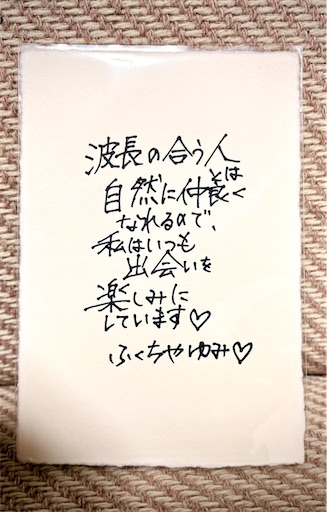 波長の合う人とは
自然に仲良く
なれるので、
私はいつも
出会いを
楽しみに
しています♡
ふくちゃゆみ♡